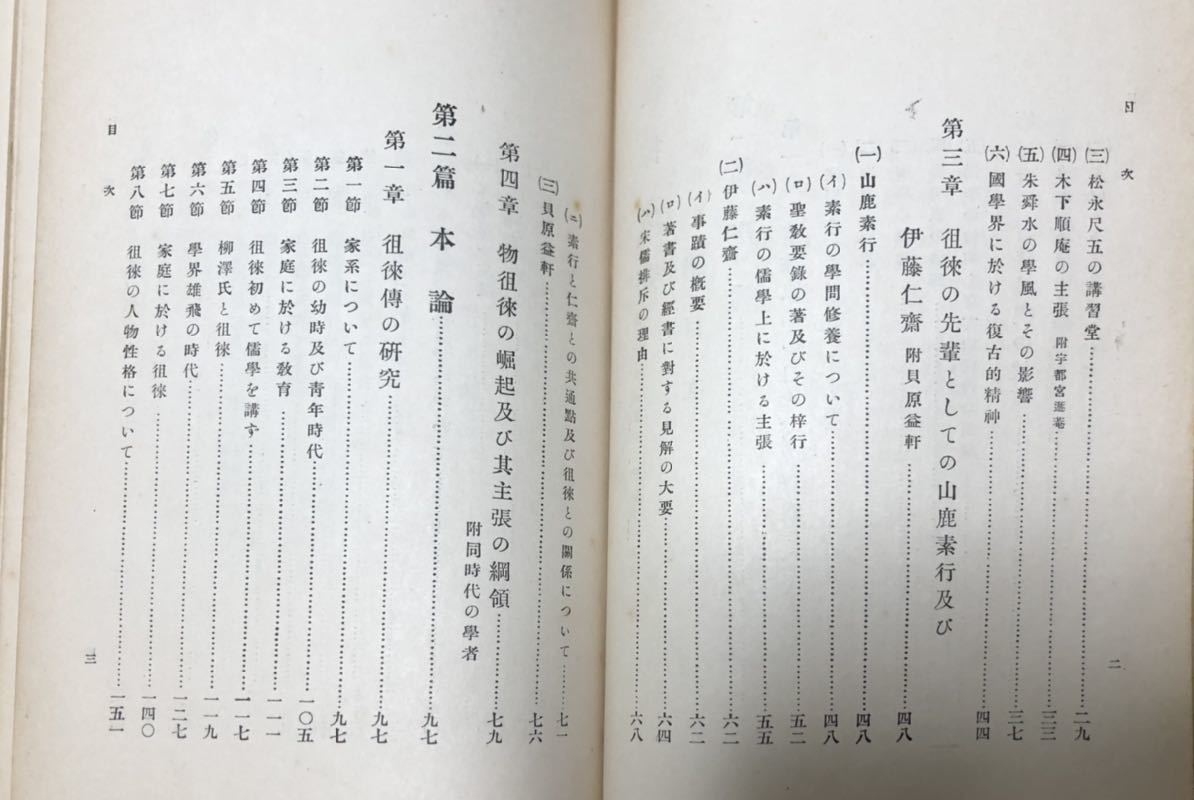 目次
㈢ 松永尺五の講習堂……二九
㈣ 木下順庵の主張 附宇都宮遯菴……三三
㈤ 朱舜水の學風とその影響……三七
㈥ 國學界に於ける復古的精神……四四
第三章 徂徠の先輩としての山鹿素行及び
伊藤仁齋 附貝原益軒……四八
㈠ 山鹿素行……四八
(イ) 素行の學問修養について……四八
(ロ) 聖敎要錄の著及びその梓行……五二
(ハ) 素行の儒學上に於ける主張……五五
㈡ 伊藤仁齋……六二
(イ) 事蹟の槪要……六二
(ロ) 著書及び經書に對する見解の大要……六四
(ハ) 宋儒排斥の理由……六八
二
(ニ) 素行と仁齋との共通點及び徂徠との關係について……七一
㈢ 貝原益軒……七六
第四章 物徂徠の崛起及び其主張の綱領……七九
附同時代の學者
第二篇 本論……九七
第一章 徂徠傳の硏究……九七
第一節 家系について……九七
第二節 徂徠の幼時及び靑年時代……一〇五
第三節 家庭に於ける敎育……一一一
第四節 徂徠初めて儒學を講す……一一七
第五節 柳澤氏と徂徠……一一九
第六節 學界雄飛の時代……一二七
第七節 家庭に於ける徂徠……一四〇
第八節 徂徠の人物性格について……一五一
目次
三